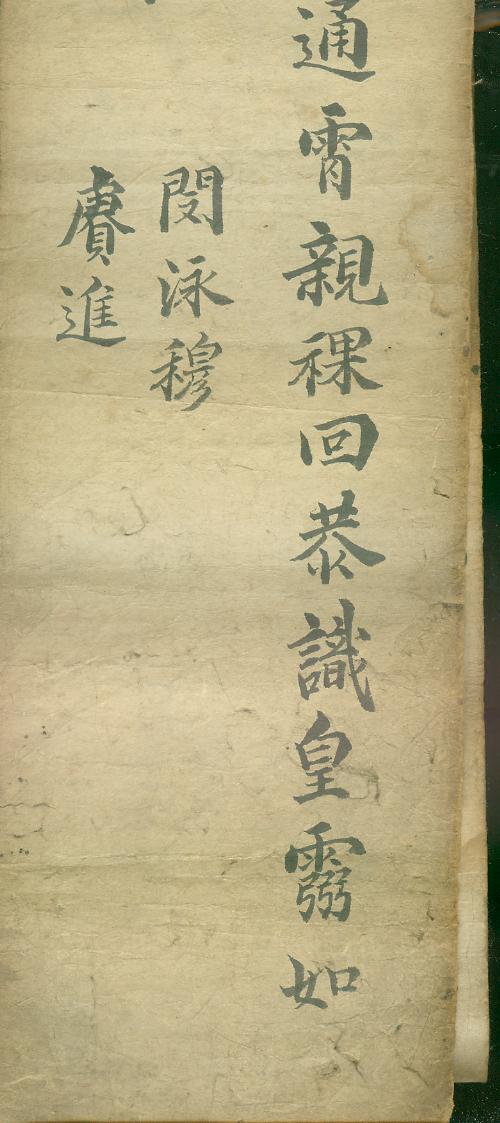 通霄親祼回恭識皇如
閔泳穆
賡進